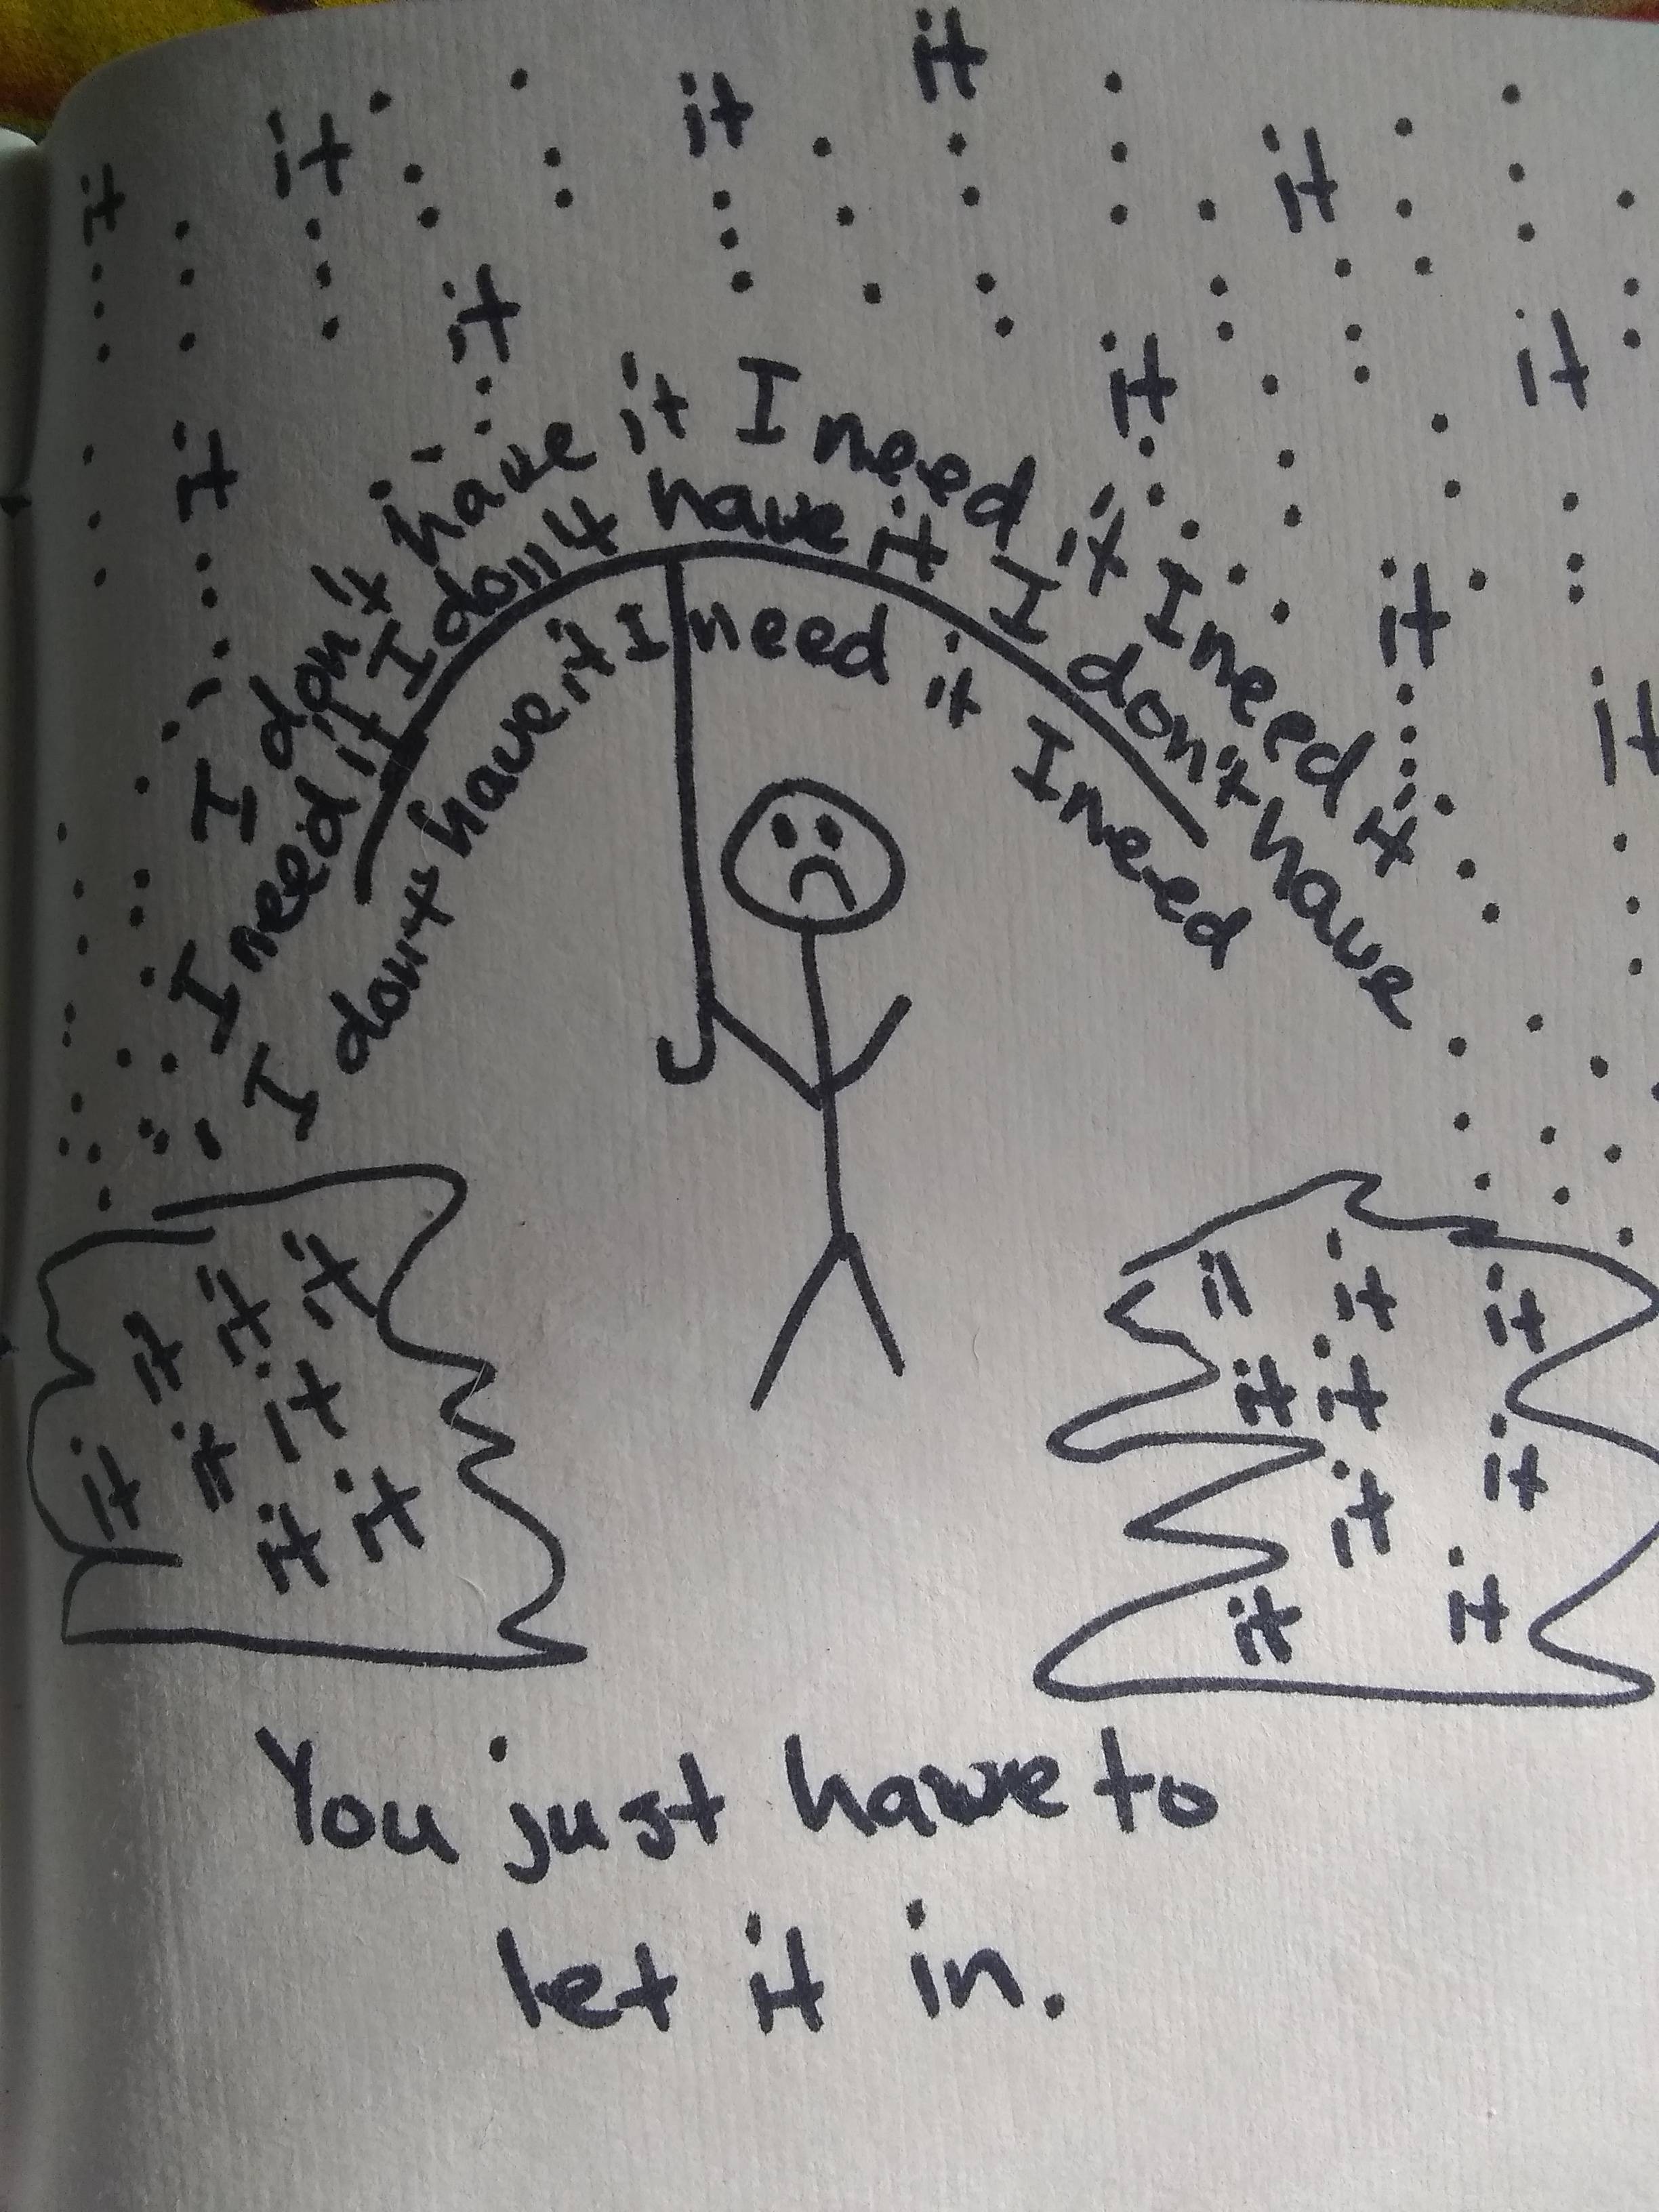 it
it
it
it
it
it
it
it
it
it
it
I don't have it I need it I need it
I need it I don't have it I don't have
I don't have it I need it I need
it it it
it it it
it it
it it it
it it it
it it
it
You just have to
let it in.